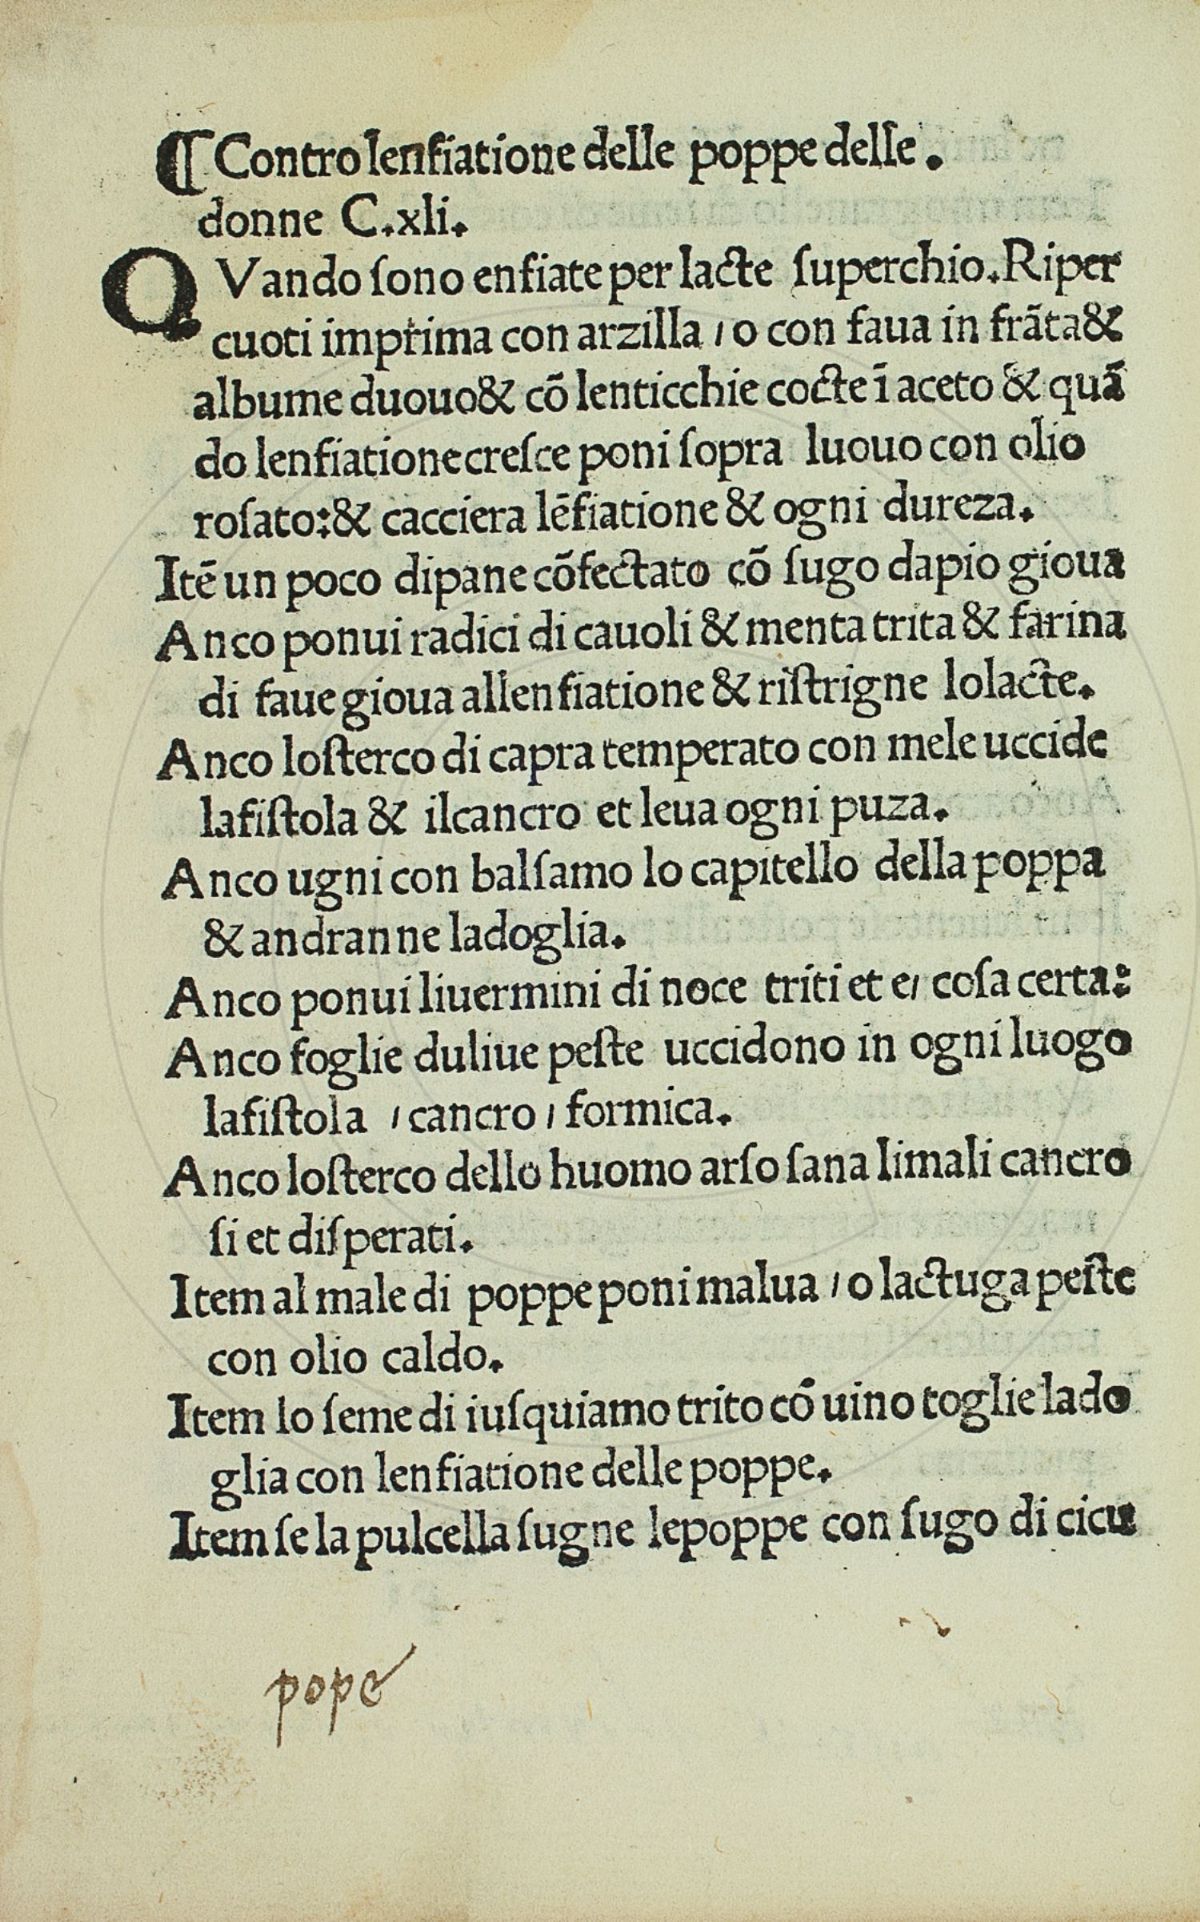 ¶ Contro lenfiatione delle poppe delle.
donne C.xli.
QVando ſono enfiate per lacte ſuperchio.Riper
cuoti imprima con arzilla / o con faua in frāta&
albume duouo& cō lenticchie cocte ī aceto & quā
do lenfiatione creſce poni ſopra luouo con olio
roſato:& cacciera lēfiatione & ogni dureza.
Itē un poco dipane cōfectato cō ſugo dapio gioua
Anco ponui radici di cauoli & menta trita & farina
di faue gioua allenfiatione & riſtrigne lolacte.
Anco loſterco di capra temperato con mele uccide
lafiſtola & ilcancro et leua ogni puza.
Anco ugni con balſamo lo capitello della poppa
& andranne ladoglia.
Anco ponui liuermini di noce triti et e/ coſa certa:
Anco foglie duliue peſte uccidono in ogni luogo
lafiſtola / cancro / formica.
Anco loſterco dello huomo arſo ſana limali cancro
ſi et diſperati.
Item al male di poppe poni malua / o lactuga peſte
con olio caldo.
Item lo ſeme di iuſquiamo trito cō uino toglie lado
glia con lenfiatione delle poppe.
Item ſe la pulcella ſugne lepoppe con ſugo di cicu
pope